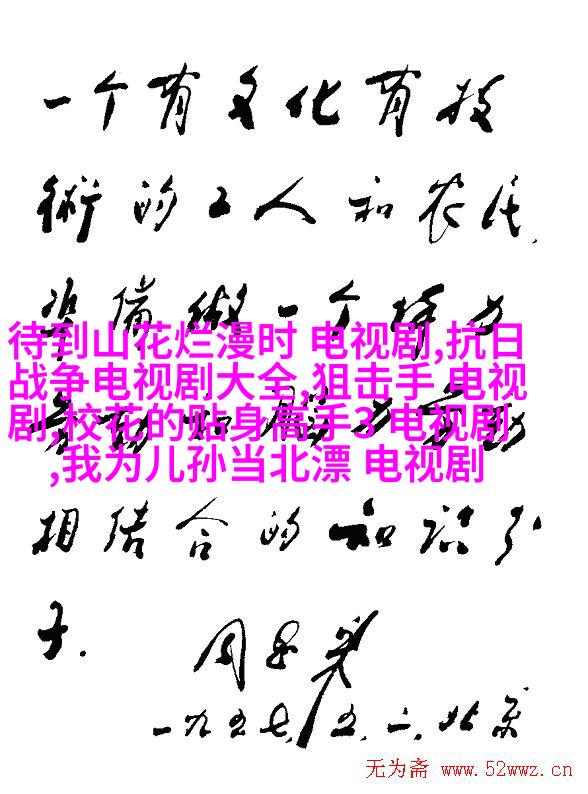 一个有文化有技
術的工人和农民,
準備做一个体力
待到山花烂漫时 电视剧,抗日
战争电视剧大全,狙击手 电视
剧,校花的贴身高手3 电视剧
,我为儿孙当北漂 电视剧
相结合的知识分
子.
周恩来
一九五七.五.一.北京
无为斋 www.52wwz.cn